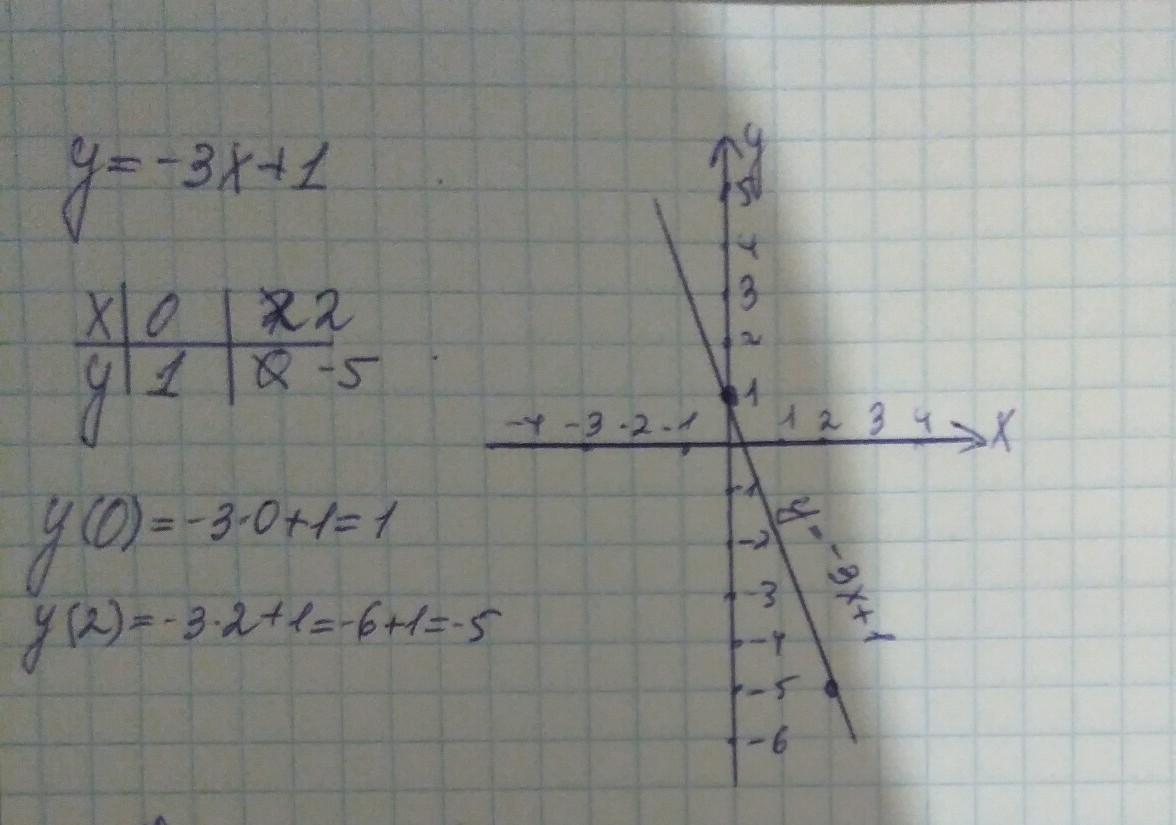 y = -3x+1
x | 0 | 2
y | 1 | -5
y(0)=-3·0+1=1
y(2)=-3·2+1=-6+1=-5
y
5
4
3
2
1
-4 -3 -2 -1 1 2 3 4 X
-1
-2
-3
-4
-5
-6
y=-3x+1